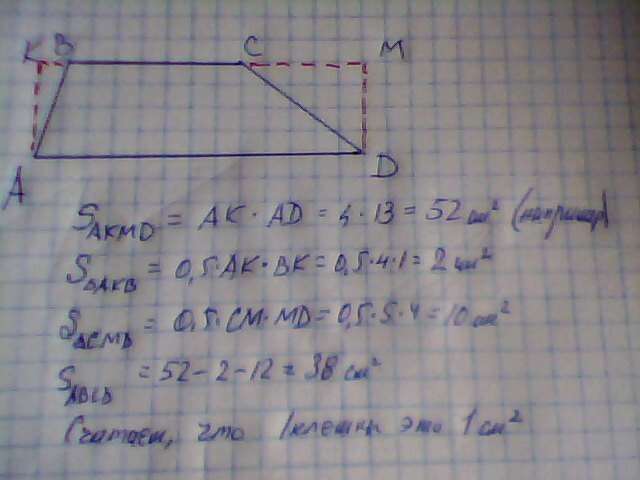 K B C M
A D
S_AKMD = AK · AD = 4 · 13 = 52 см² (например)
S_ΔAKB = 0,5 · AK · BK = 0,5 · 4 · 1 = 2 см²
S_ΔCMD = 0,5 · CM · MD = 0,5 · 5 · 4 = 10 см²
S_ABCD = 52 - 2 - 12 = 38 см²
Считаем, что 1 клетка это 1 см²